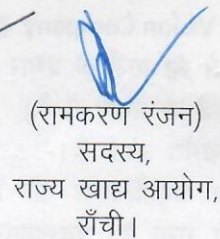 (रामकरण रंजन)
सदस्य,
राज्य खाद्य आयोग,
राँची।